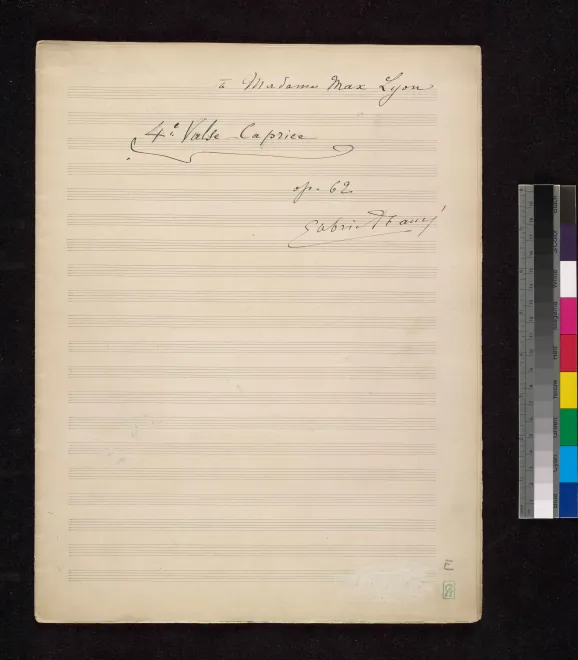 à Madame Max Lyon
4e Valse Caprice
op. 62
Gabriel Fauré
E